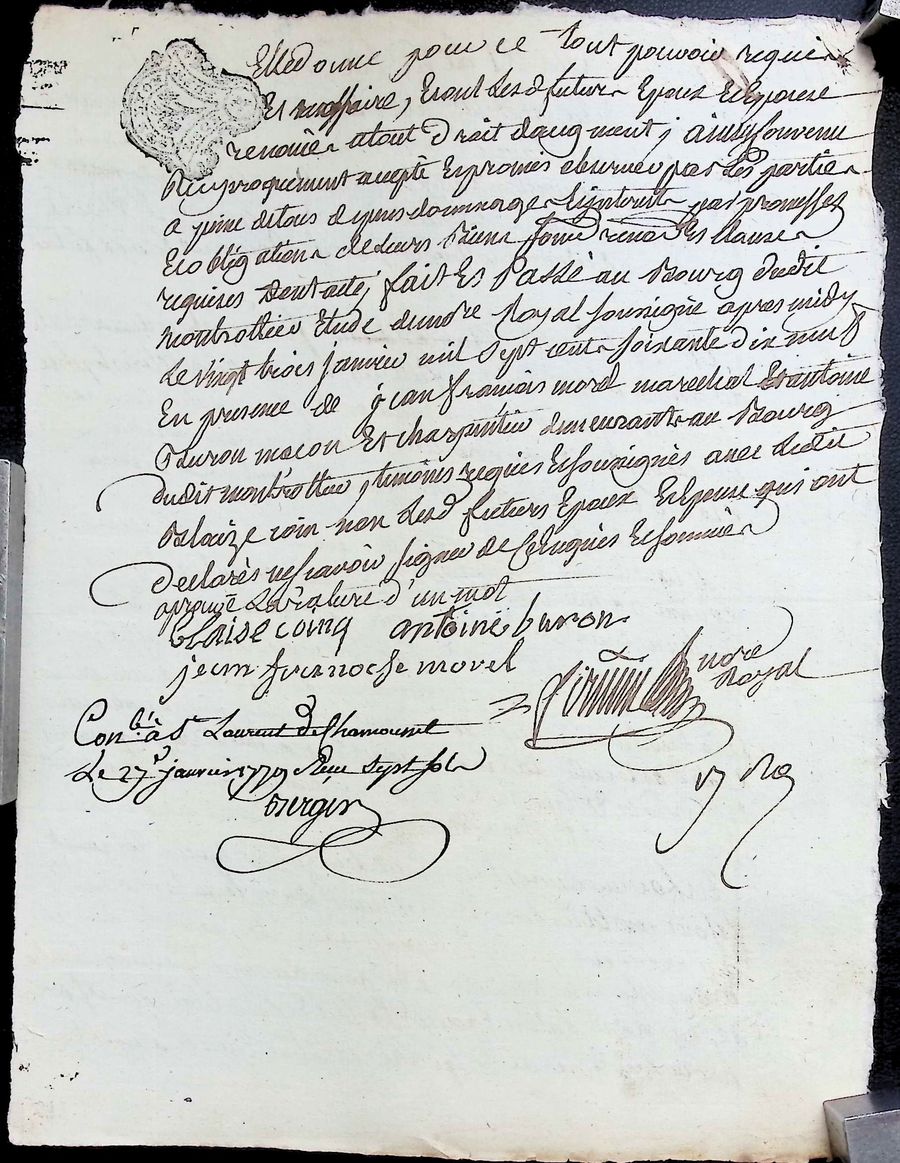 Elle donne pour ce tout pouvoir requis
Et necessaire, Et ont Lesd futurs Epoux Et Epouse
renoncé a tout droit daugment, ainsy convenu
Reciproquement accepté Et promis observer par Les parties
a peine de tous depens dommages Et interests par promesses
Et obligations de Leurs Biens soumis renon Et clauses
requises Dont acte, fait Et Passé au Bourg dudit
montrottier Etude du nore Royal soussigné apres midy
Le vingt trois janvier mil sept cent soixante dix neuf
En presence de jean francois morel marechal Et antoine
Buron macon Et charpentier demeurants au Bourg
dudit montrottier, temoins requis Et soussignés avec Ledit
Blaize coin non Lesd futurs Epoux Et Epouse qui ont
declarés ne scavoir signer de ce Enquis Et sommés
aprouvé La rature d'un mot
blaise coinq antoine buron
jean franocse morel
nore
Royal
Con.lé a St Laurent de Chamousset
Le 27 janvier 1779 Reçu sept sols